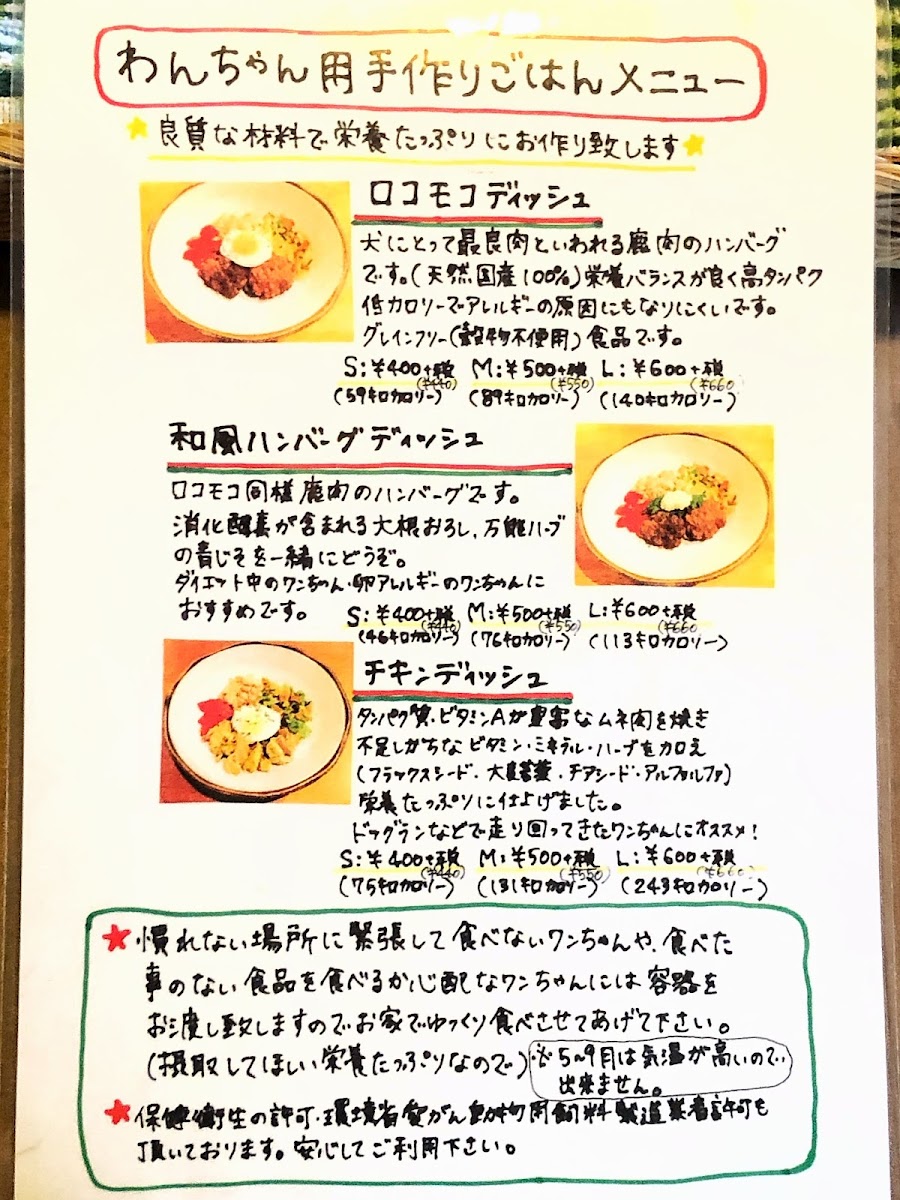 わんちゃん用手作りごはんメニュー
★良質な材料で栄養たっぷりにお作り致します★
ロコモコディッシュ
犬にとって最良肉といわれる鹿肉のハンバーグ
です。(天然国産100%)栄養バランスが良く高タンパク
低カロリーでアレルギーの原因にもなりにくいです。
グレインフリー(穀物不使用)食品です。
S:¥400+税 M:¥500+税 L:¥600+税
(¥440) (¥550) (¥660)
(59キロカロリー) (89キロカロリー) (140キロカロリー)
和風ハンバーグディッシュ
ロコモコ同様鹿肉のハンバーグです。
消化酵素が含まれる大根おろし、万能ハーブ
の青じそを一緒にどうぞ。
ダイエット中のワンちゃん・卵アレルギーのワンちゃんに
おすすめです。
S:¥400+税 M:¥500+税 L:¥600+税
(¥440) (¥550) (¥660)
(46キロカロリー) (76キロカロリー) (113キロカロリー)
チキンディッシュ
タンパク質・ビタミンAが豊富なムネ肉を焼き
不足しがちなビタミン・ミネラル・ハーブを加え
(フラックスシード・大麦若葉・チアシード・アルファルファ)
栄養たっぷりに仕上げました。
ドッグランなどで走り回ってきたワンちゃんにオススメ!
S:¥400+税 M:¥500+税 L:¥600+税
(¥440) (¥550) (¥660)
(75キロカロリー) (131キロカロリー) (243キロカロリー)
★慣れない場所に緊張して食べないワンちゃんや、食べた
事のない食品を食べるか心配なワンちゃんには容器を
お渡し致しますのでお家でゆっくり食べさせてあげて下さい。
(摂取してほしい栄養たっぷりなので)※5~9月は気温が高いので
出来ません。
★保健衛生の許可・環境省愛がん動物用飼料製造業者許可も
頂いております。安心してご利用下さい。